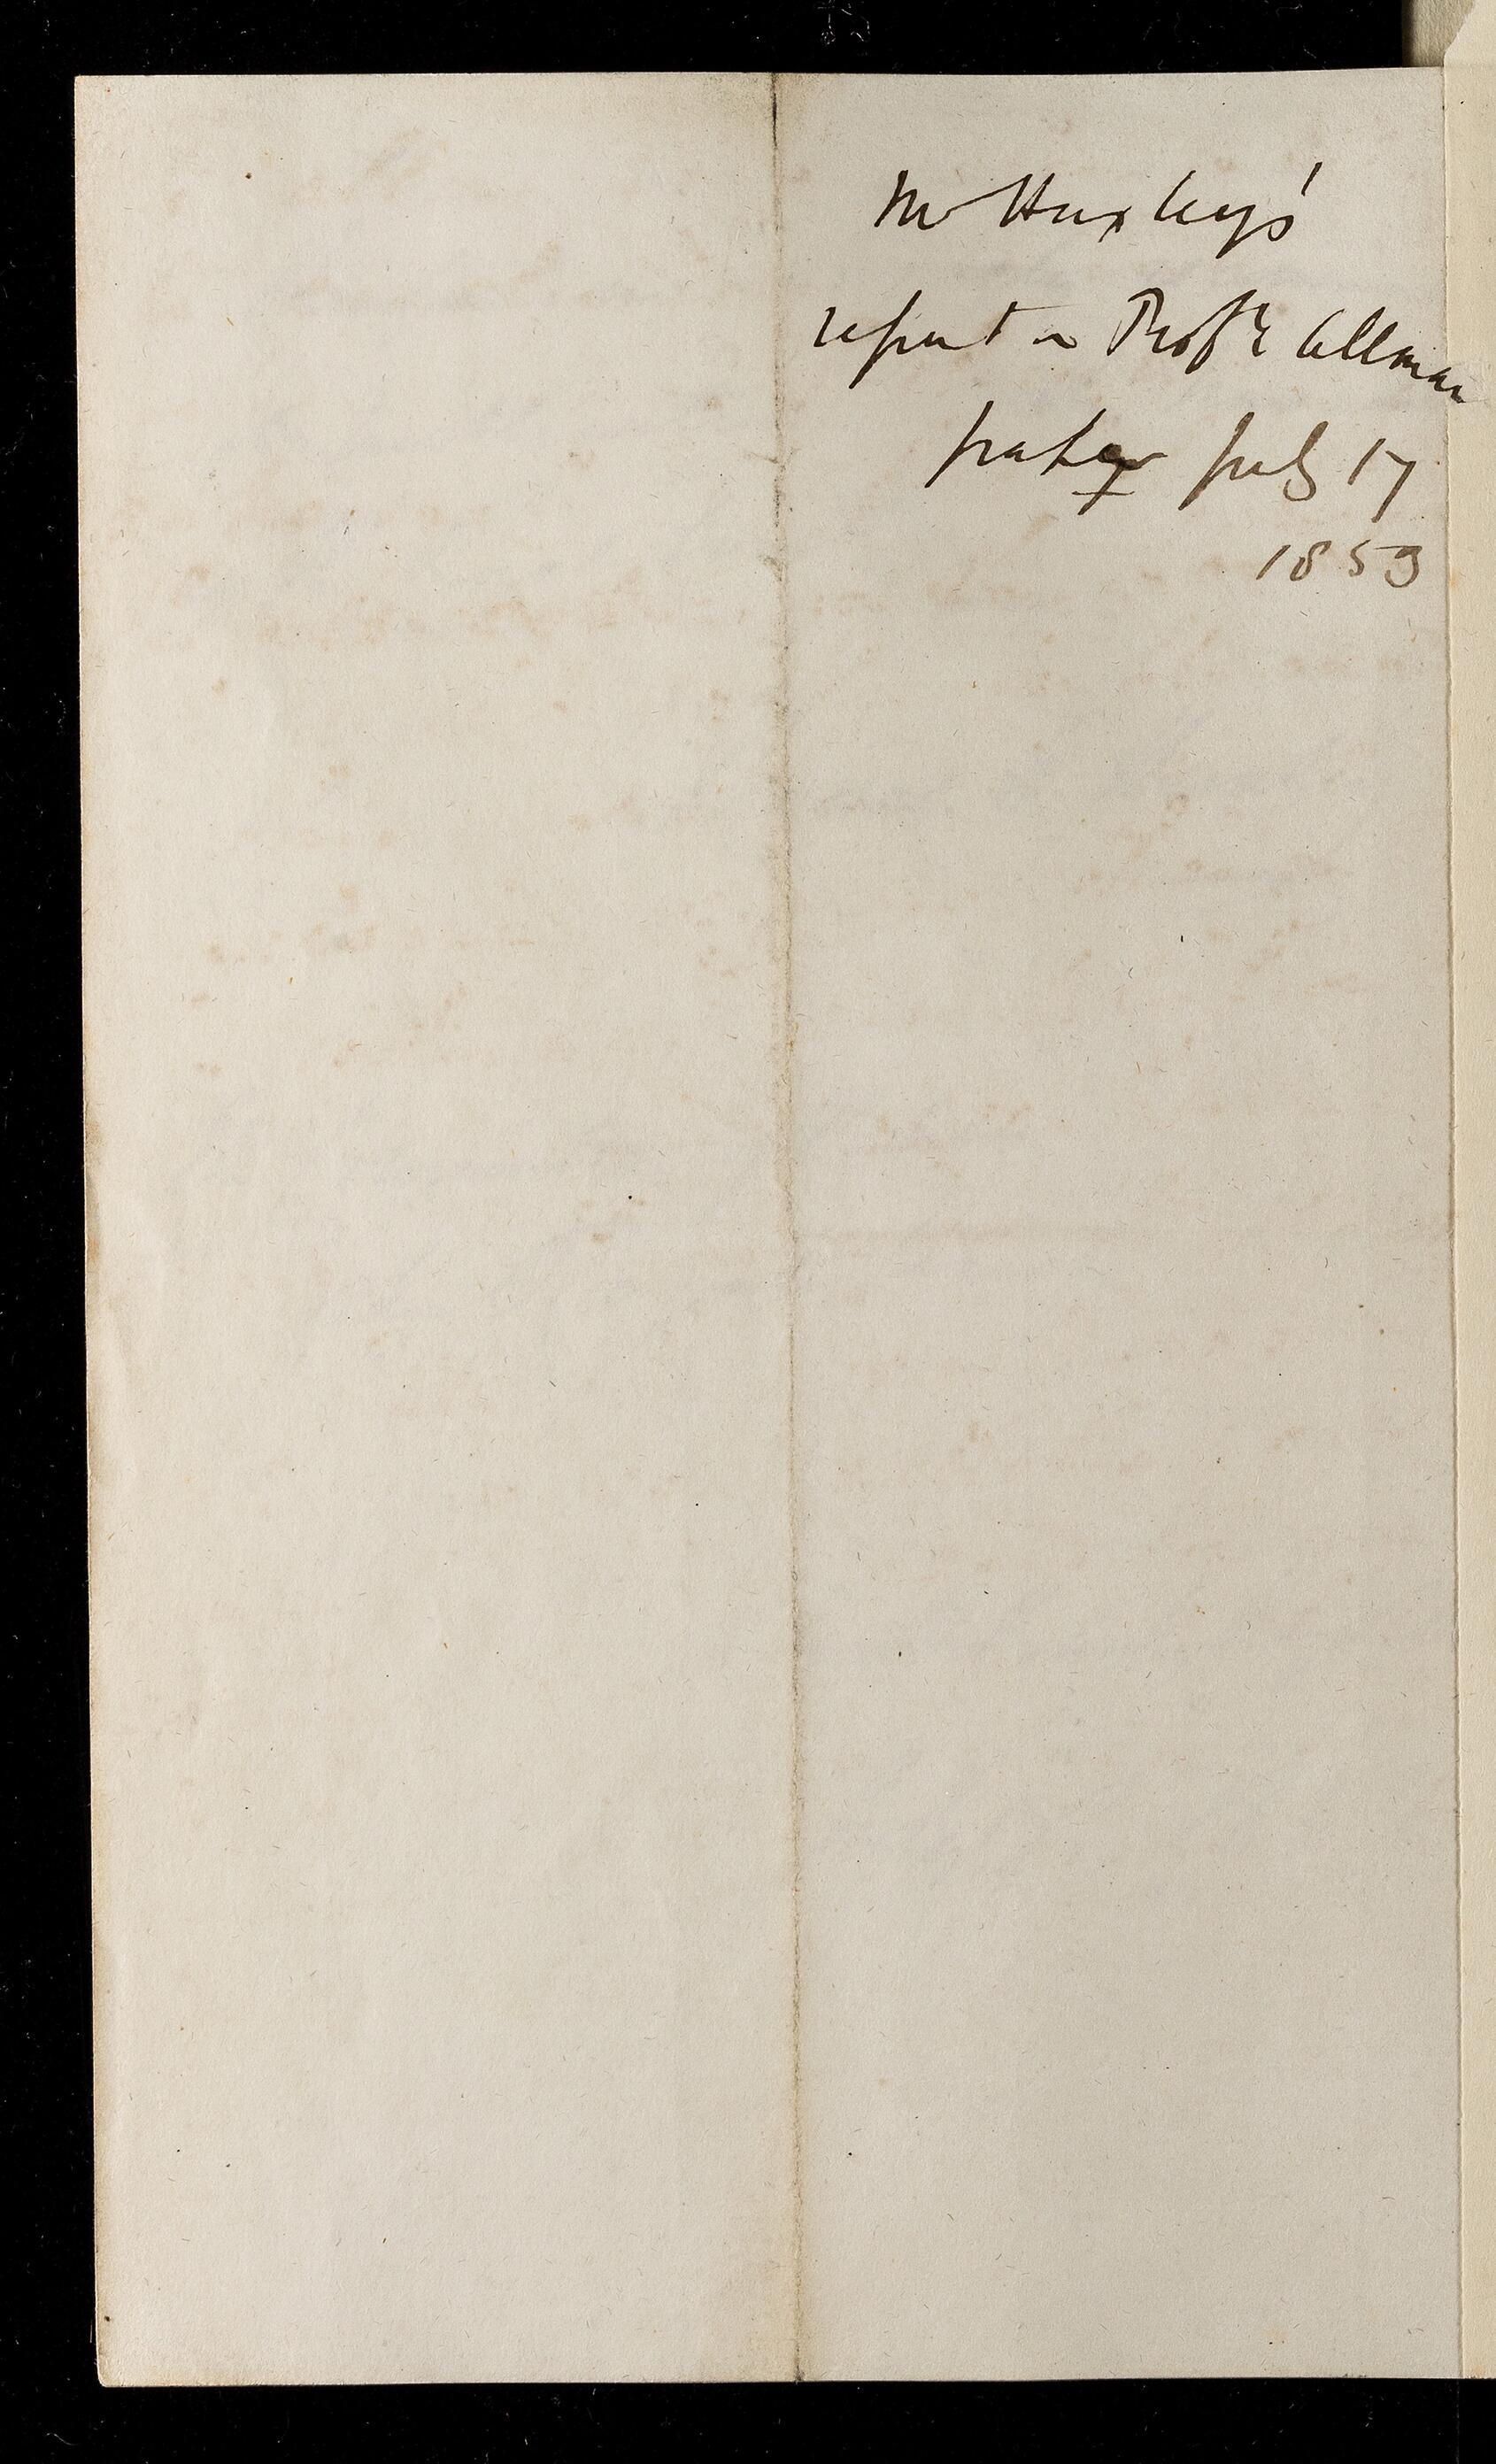 Mr Huxley's
report on Profr Allman
paper July 17
1853